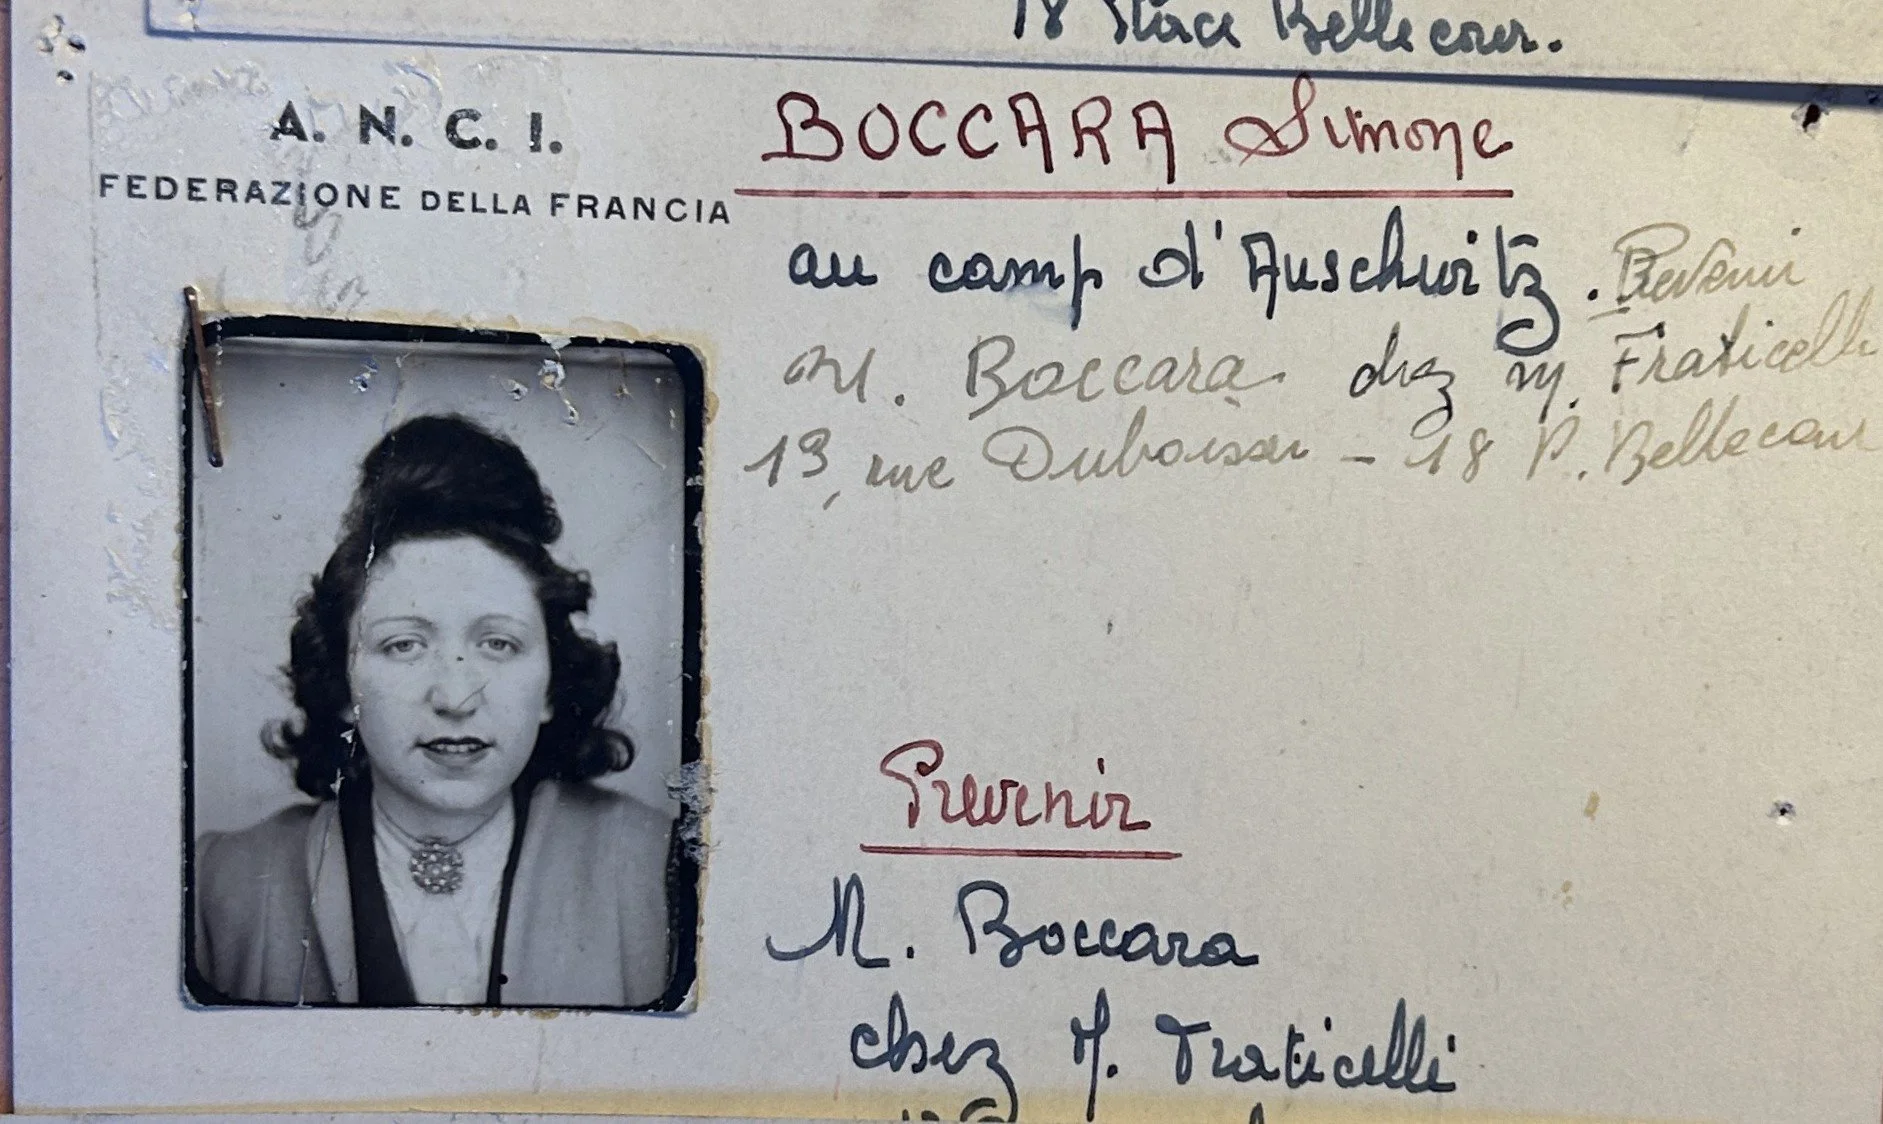 18 Place Bellecour.
A. N. C. I.
FEDERAZIONE DELLA FRANCIA
BOCCARA Simone
au camp d'Auschwitz. Prévenir
M. Boccara chez M. Fraticelli
13, rue Duboisson - 18 P. Bellecour
Prevenir
M. Boccara
chez M. Fraticelli